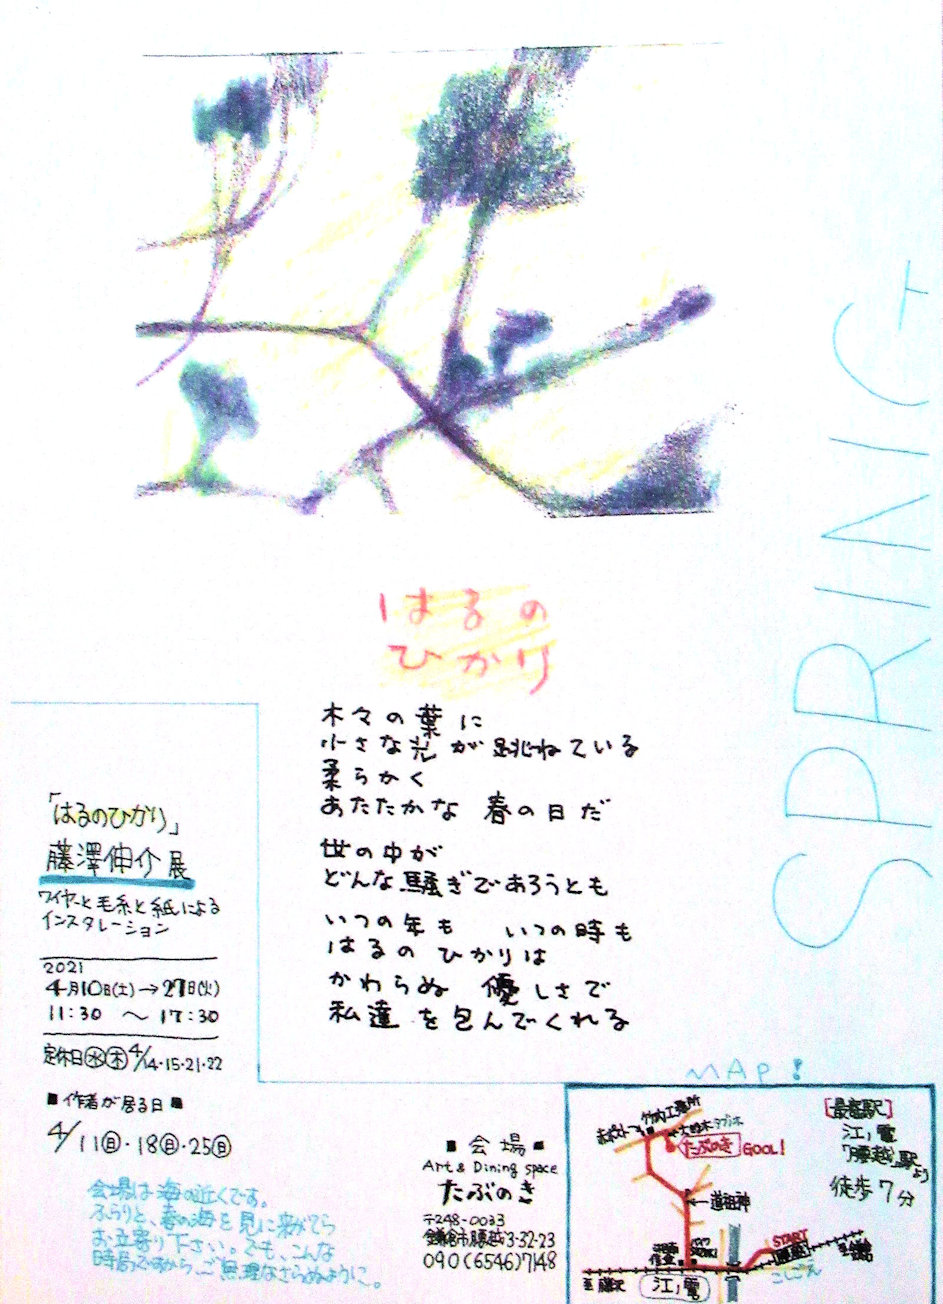 SPRING
はるの
ひかり
木々の葉に
小さな光が跳ねている
柔らかく
あたたかな 春の日だ
世の中が
どんな騒ぎであろうとも
いつの年も いつの時も
はるの ひかりは
かわらぬ 優しさで
私達を包んでくれる
「はるのひかり」
藤澤伸介展
ワイヤーと毛糸と紙による
インスタレーション
2021
4月10日(土)→27日(火)
11:30 〜 17:30
定休日㊌㊍ 4/14・15・21・22
■作者が居る日■
4/11㊐・18㊐・25㊐
会場は海の近くです。
ふらりと、春の海を見に来がてら
お立寄り下さい。でも、こんな
時局ですから、ご無理なさらぬように。
■会場■
Art & Dining space
たぶのき
〒248-0033
鎌倉市腰越3-32-23
090(6546)7148
MAP!
竹内工務所
赤ポスト
たぶのき GOOL!
道祖神
START
腰越
こしごえ
至藤沢
江ノ電
至鎌倉
[最寄駅]
江ノ電
「腰越」駅より
徒歩7分